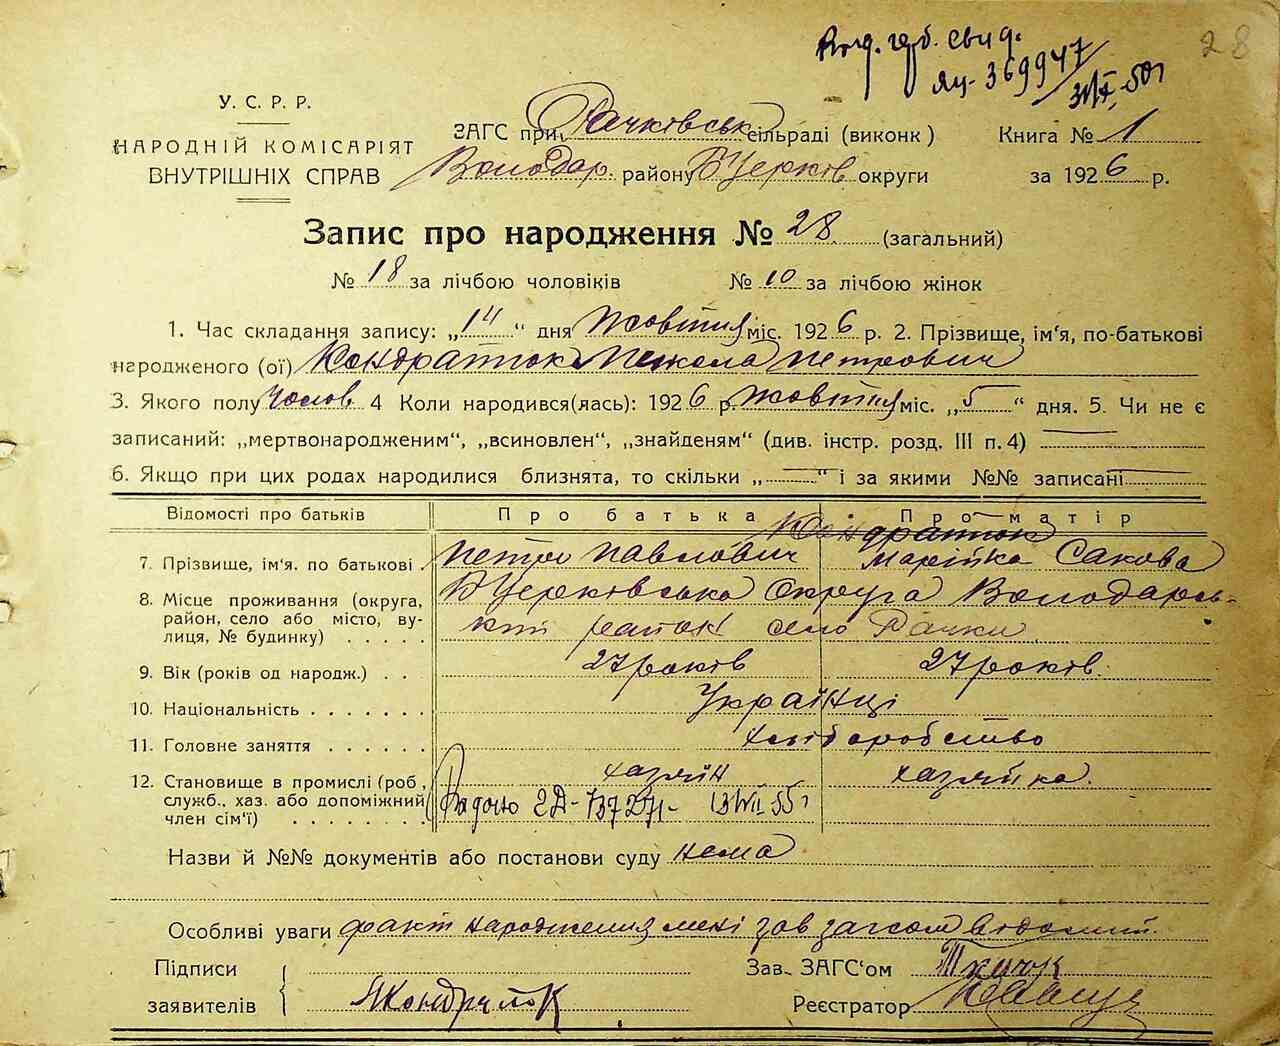 28
свид.
ЯЦ-369947
У. С. Р. Р.
НАРОДНІЙ КОМІСАРІЯТ
ВНУТРІШНІХ СПРАВ
ЗАГС при Рачковськ сільраді (виконк)
Володар. району Б Церков округи
Книга № 1
за 1926 р.
Запис про народження № 28 (загальний)
№ 18 за лічбою чоловіків № 10 за лічбою жінок
1. Час складання запису: „14“ дня Жовтня міс. 1926 р. 2. Прізвище, ім'я, по-батькові
народженого (ої) Кондратюк Микола Петрович
3. Якого полу Чолов. 4 Коли народився(лась): 1926 р. Жовтня міс. „5“ дня. 5. Чи не є
записаний: „мертвонародженим“, „всиновлен“, „знайденям“ (див. інстр. розд. III п. 4)
6. Якщо при цих родах народилися близнята, то скільки „ “ і за якими №№ записані
Відомості про батьків Про батька Про матір
Кондратюк
7. Прізвище, ім'я. по батькові Петро Павлович Марійка Сакова
8. Місце проживання (округа, район, село або місто, вулиця, № будинку) Б Церковська Округа Володарсь-
кий район село Рачки
9. Вік (років од народж.) 27 років 27 років.
10. Національність Українці
11. Головне заняття хліборобство
12. Становище в промислі (роб., служб., хаз. або допоміжний член сім'ї) хазяїн хазяйка.
55 г
Назви й №№ документів або постанови суду нема
Особливі уваги факт народження мені зав загсом відомий.
Підписи
заявителів ЯКондратюк
Зав. ЗАГС'ом Ткачук
Реєстратор